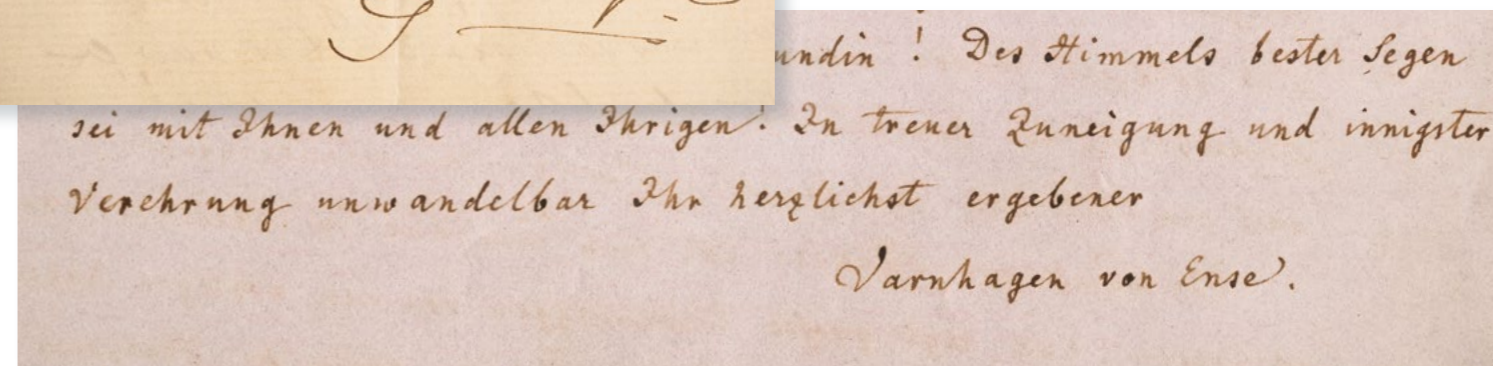 undin ! Des Himmels bester Segen
sei mit Ihnen und allen Ihrigen! In treuer Zuneigung und innigster
Verehrung unwandelbar Ihr herzlichst ergebener
Varnhagen von Ense.